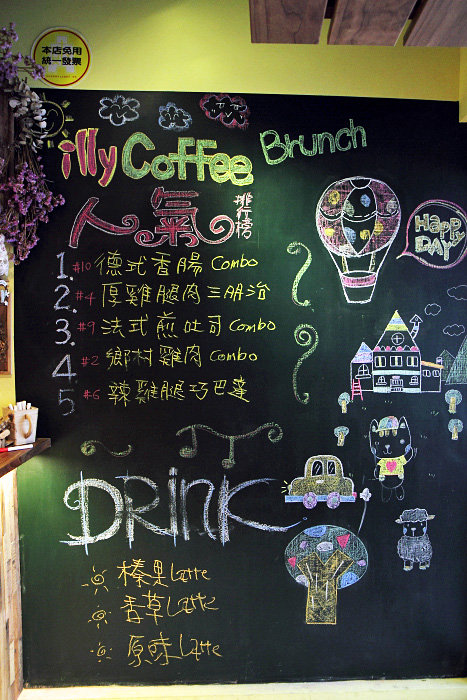 本店免用
統一發票
illy Coffee Brunch
人氣排行榜
HAPPY
DAY
1. #10 德式香腸 Combo
2. #4 厚雞腿肉三朋治
3. #9 法式煎吐司 Combo
4 #2 鄉村雞肉 Combo
5 #6 辣雞腿巧巴達
DRINK
榛果Latte
香草Latte
原味Latte